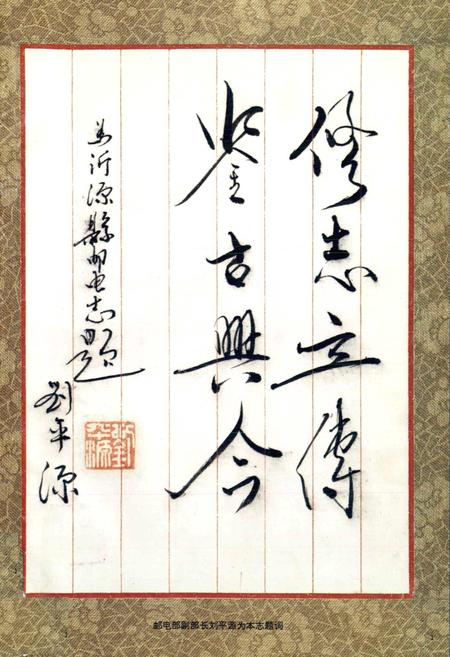 修志立傳
鉴古興今
为沂源縣邮电志题
劉平源
劉平源
邮电部副部长刘平源为本志题词